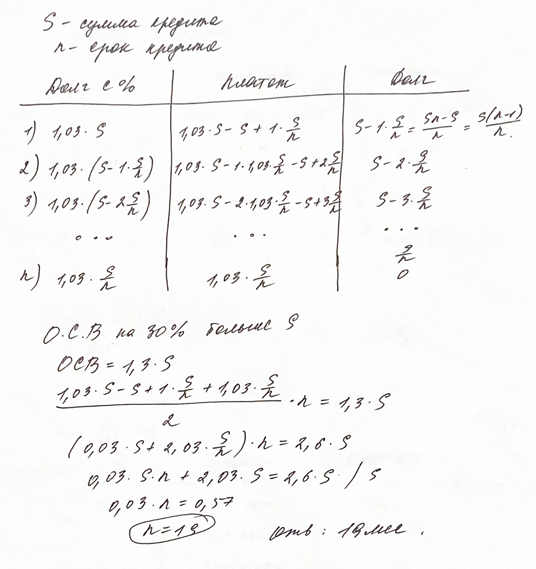 S - сумма кредита
n - срок кредита
Долг с % | Платеж | Долг
1) 1,03·S | 1,03·S - S + 1·S/n | S - 1·S/n = (Sn-S)/n = S(n-1)/n.
2) 1,03·(S - 1·S/n) | 1,03·S - 1·1,03·S/n - S + 2S/n | S - 2·S/n
3) 1,03·(S - 2S/n) | 1,03·S - 2·1,03·S/n - S + 3S/n | S - 3·S/n
... | ... | ...
S/n
n) 1,03·S/n | 1,03·S/n | 0
О.С.В на 30% больше S
ОСВ = 1,3·S
(1,03·S - S + 1·S/n + 1,03·S/n)/2 · n = 1,3·S
(0,03·S + 2,03·S/n)·n = 2,6·S
0,03·S·n + 2,03·S = 2,6·S / S
0,03·n = 0,57
n = 19 отв: 19 мес.